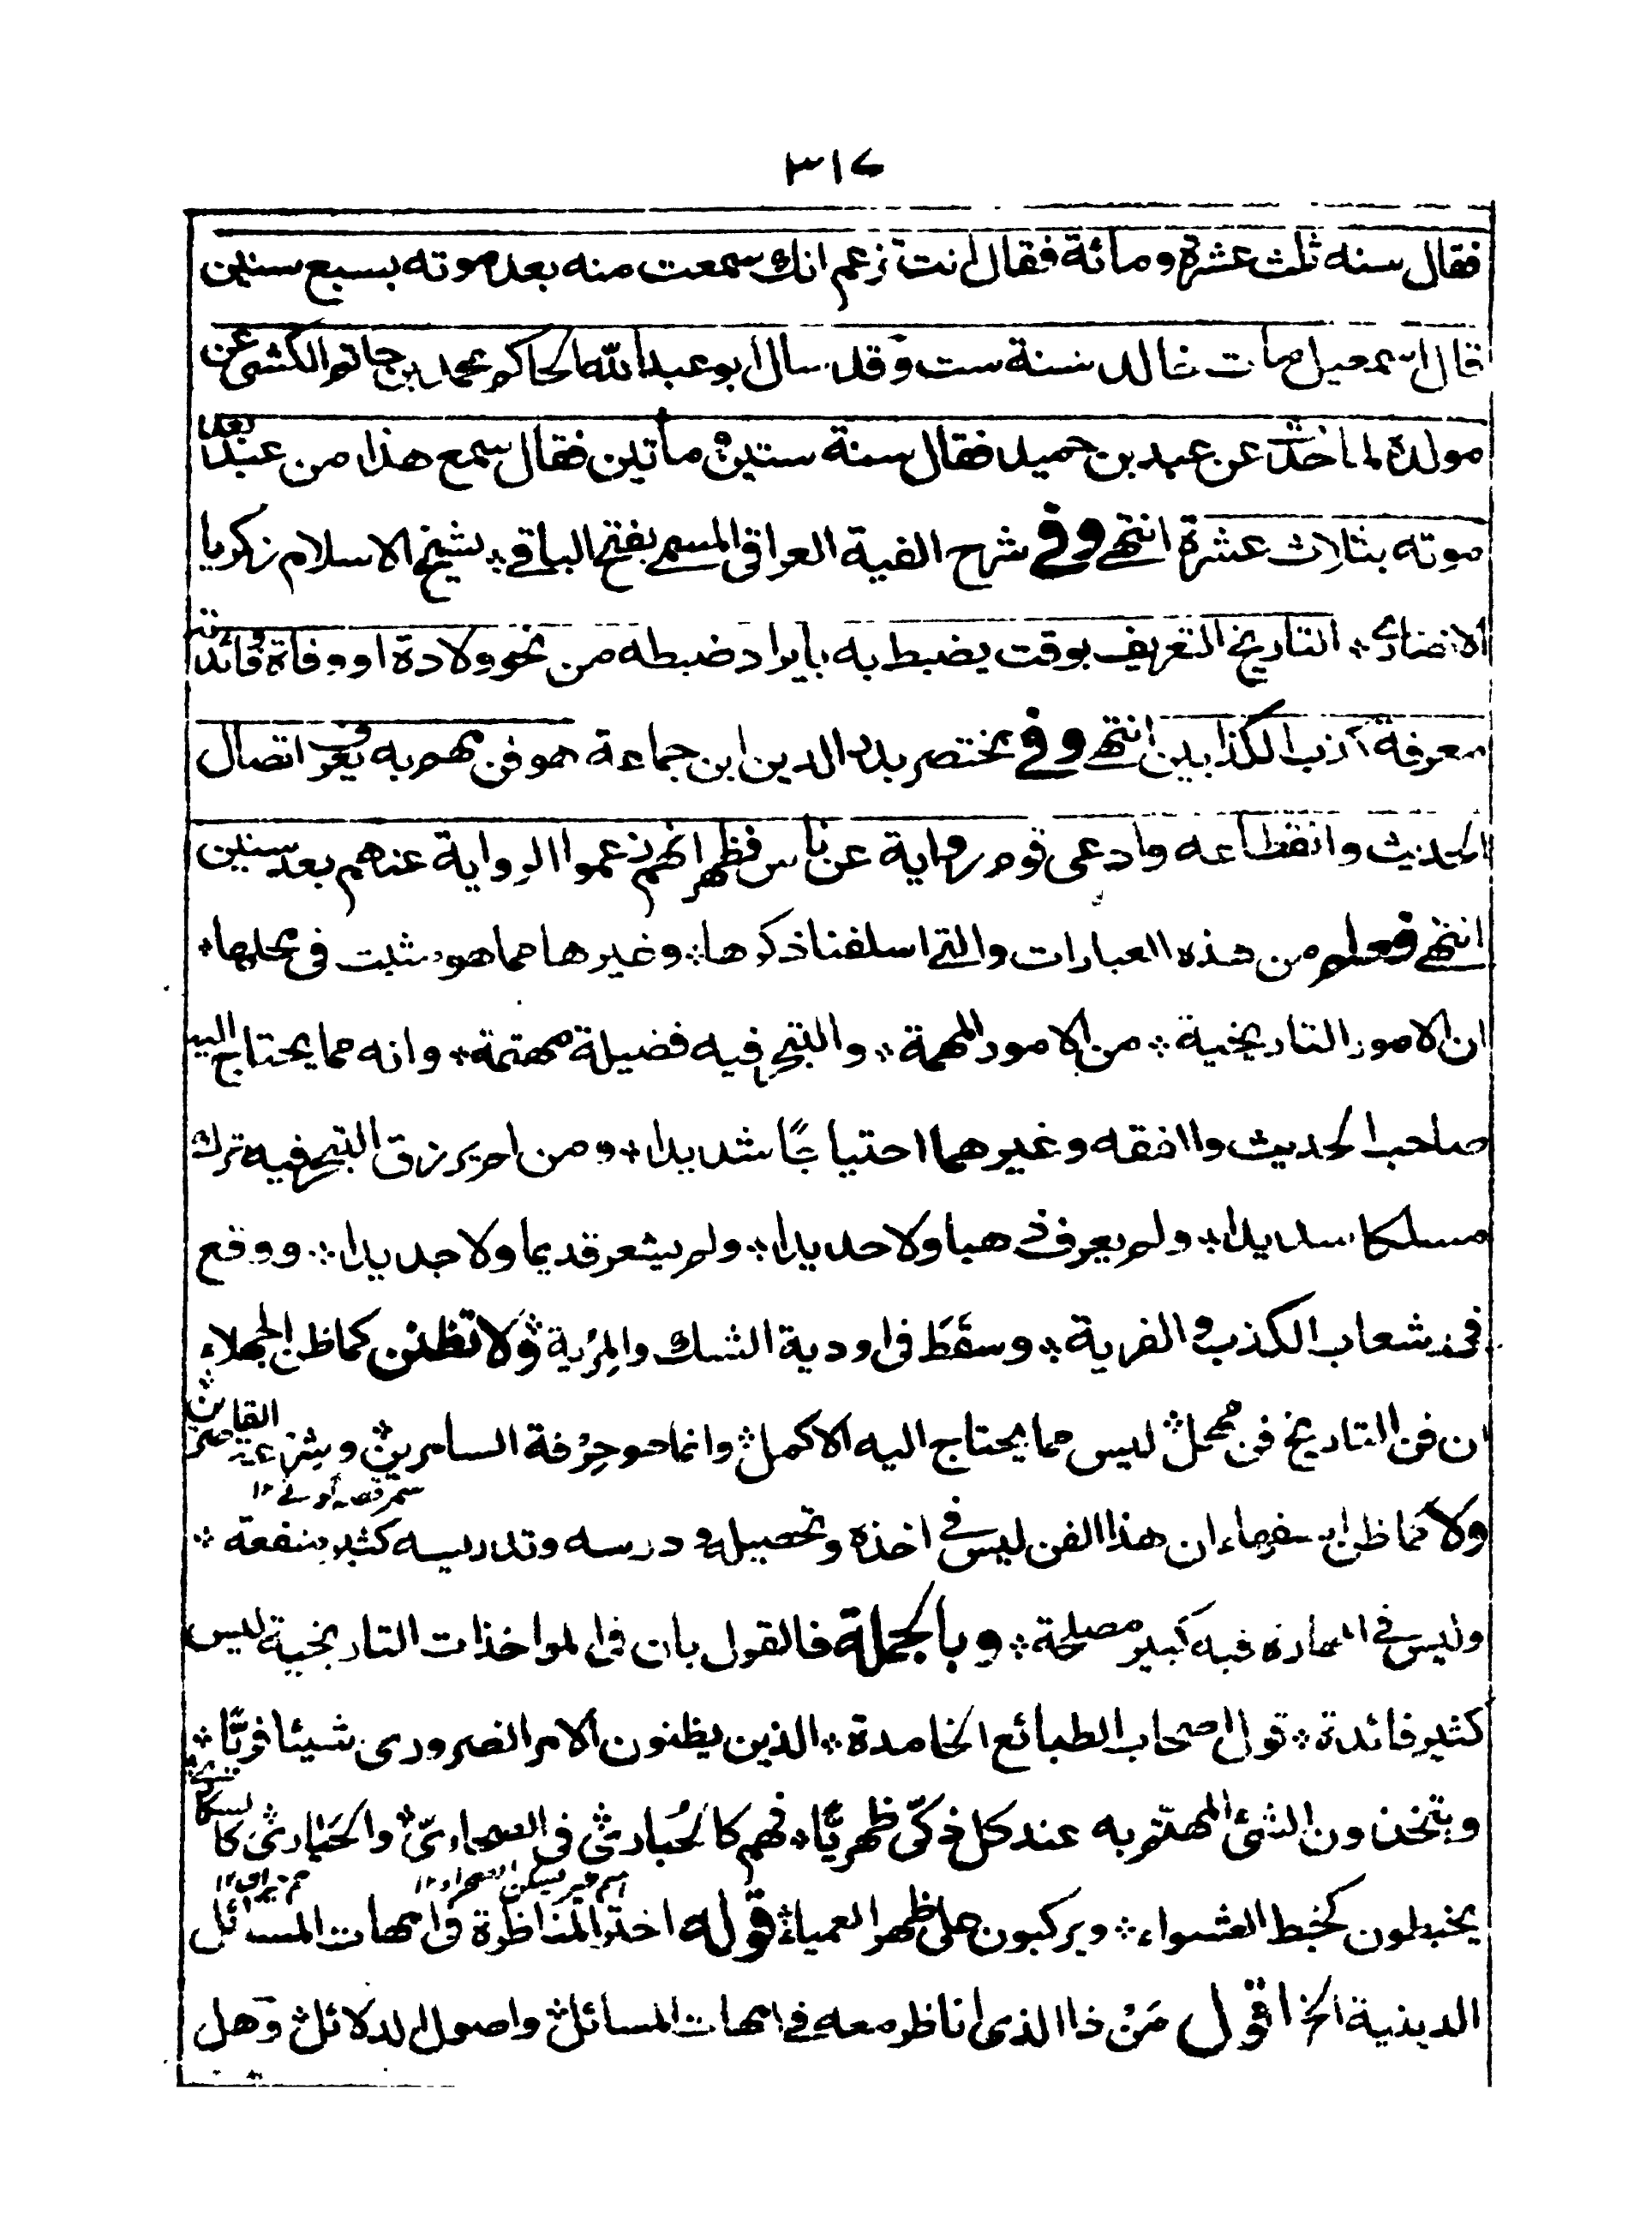 ۳۱۷
فقال سنه ثلث عشرة ومائة فقال انت تزعم انك سمعت منه بعد موته بسبع سنين
قال اسمعيل مات خالد سنة ست وقد سال ابو عبد الله الحاكم محمد بن حاتم الكشي عن
مولده لما حدث عن عبد بن حميد فقال سنة ستين ومأتين فقال سمع هذا من عبد بعد
موته بثلاث عشرة انتهى وفي شرح الفية العراقي المسمى بفتح الباقي ۞ لشيخ الاسلام زكريا
الانصاري ۞ التاريخ التعريف بوقت يضبط به بايراد ضبطه من نحو ولادة او وفاة وفائدته
معرفة كذب الكذابين انتهى وفي مختصر بدر الدين ابن جماعة هو فن مهم به يعرف اتصال
الحديث وانقطاعه وادعى قوم رواية عن ناس فظهر انهم زعموا الرواية عنهم بعد سنين
انتهى فعلم من هذه العبارات والتي اسلفنا ذكرها ۞ وغيرها مما هو مثبت في محلها ۞
ان الامور التاريخية ۞ من الامور المهمة ۞ والتبحر فيه فضيلة مهتمة ۞ وانه مما يحتاج اليه
صاحب الحديث والفقه وغيرهما احتياجًا شديدا ۞ ومن لم يرزق التبحر فيه ترك
مسلكا سديدا ۞ ولم يعرف ذهبا ولا حديدا ۞ ولم يشعر قديما ولا جديدا ۞ ووقع
في شعاب الكذب والفرية ۞ وسقَطَ في اودية الشك والمِرْية ۞ ولا تظنن كما ظن الجهلاء
ان فن التاريخ فن مهمل ۞ ليس مما يحتاج اليه الاكمل ۞ وانما هو حِرْفة السامرين ۞ وشرعة القاصرين ۞
ولا كما ظن السفهاء ان هذا الفن ليس في اخذه وتحصيله ودرسه وتدريسه كثير منفعة ۞
وليس في المهارة فيه كبير مصلحة ۞ وبالجملة فالقول بان في المواخذات التاريخية ليس
كثير فائدة ۞ قول اصحاب الطبائع الخامدة ۞ الذين يظنون الامر الضروري شيئا فريًّا ۞
ويتخذون الشئ المهتم به عند كل ذكيّ ظهريًّا ۞ فهم كالحُبارى في الصحارى ۞ والحَيَارى كالسكارى ۞
اسم طير يسكن الصحراء ۱۲
يخبطون كخبط العشواء ۞ ويركبون على ظهر العمياء ۞ قوله اختر المناظرة في امهات المسائل
الدينية الخ اقول مَنْ ذا الذي اناظر معه في امهات المسائل ۞ واصول الدلائل ۞ وهل